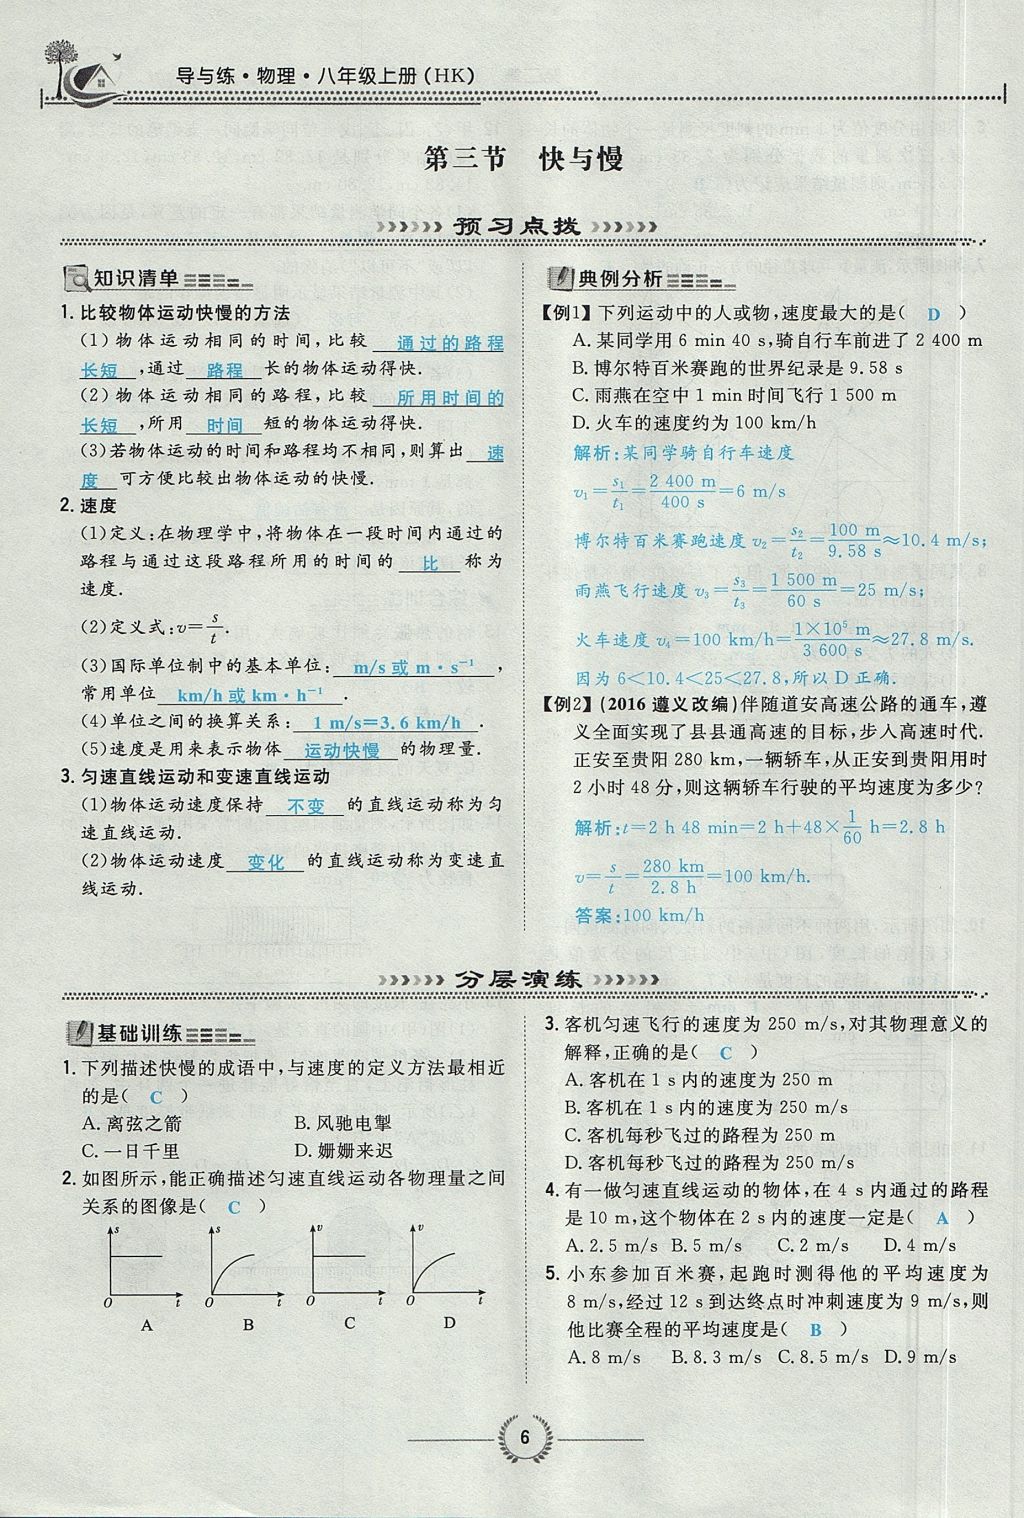 导与练·物理·八年级上册(HK)
第三节 快与慢
预习点拨
知识清单
1. 比较物体运动快慢的方法
(1)物体运动相同的时间,比较 通过的路程
长短 ,通过 路程 长的物体运动得快.
(2)物体运动相同的路程,比较 所用时间的
长短 ,所用 时间 短的物体运动得快.
(3)若物体运动的时间和路程均不相同,则算出 速
度 可方便比较出物体运动的快慢.
2. 速度
(1)定义:在物理学中,将物体在一段时间内通过的
路程与通过这段路程所用的时间的 比 称为
速度.
(2)定义式:v=s/t.
(3)国际单位制中的基本单位: m/s 或 m·s⁻¹ ,
常用单位 km/h 或 km·h⁻¹ .
(4)单位之间的换算关系: 1 m/s=3.6 km/h .
(5)速度是用来表示物体 运动快慢 的物理量.
3. 匀速直线运动和变速直线运动
(1)物体运动速度保持 不变 的直线运动称为匀
速直线运动.
(2)物体运动速度 变化 的直线运动称为变速直
线运动.
典例分析
【例1】下列运动中的人或物,速度最大的是( D )
A. 某同学用 6 min 40 s,骑自行车前进了 2 400 m
B. 博尔特百米赛跑的世界纪录是 9.58 s
C. 雨燕在空中 1 min 时间飞行 1 500 m
D. 火车的速度约为 100 km/h
解析:某同学骑自行车速度
v₁=s₁/t₁=2 400 m/400 s=6 m/s
博尔特百米赛跑速度 v₂=s₂/t₂=100 m/9.58 s≈10.4 m/s;
雨燕飞行速度 v₃=s₃/t₃=1 500 m/60 s=25 m/s;
火车速度 v₄=100 km/h=1×10⁵ m/3 600 s≈27.8 m/s.
因为 6<10.4<25<27.8,所以 D 正确.
【例2】(2016 遵义改编)伴随道安高速公路的通车,遵
义全面实现了县县通高速的目标,步人高速时代.
正安至贵阳 280 km,一辆轿车,从正安到贵阳用时
2 小时 48 分,则这辆轿车行驶的平均速度为多少?
解析:t=2 h 48 min=2 h+48×1/60 h=2.8 h
v=s/t=280 km/2.8 h=100 km/h.
答案:100 km/h
分层演练
基础训练
1. 下列描述快慢的成语中,与速度的定义方法最相近
的是( C )
A. 离弦之箭 B. 风驰电掣
C. 一日千里 D. 姗姗来迟
2. 如图所示,能正确描述匀速直线运动各物理量之间
关系的图像是( C )
s s v v
O t O t O t O t
A B C D
3. 客机匀速飞行的速度为 250 m/s,对其物理意义的
解释,正确的是( C )
A. 客机在 1 s 内的速度为 250 m
B. 客机在 1 s 内的速度为 250 m/s
C. 客机每秒飞过的路程为 250 m
D. 客机每秒飞过的路程为 250 m/s
4. 有一做匀速直线运动的物体,在 4 s 内通过的路程
是 10 m,这个物体在 2 s 内的速度一定是( A )
A. 2.5 m/s B. 5 m/s C. 2 m/s D. 4 m/s
5. 小东参加百米赛,起跑时测得他的平均速度为
8 m/s,经过 12 s 到达终点时冲刺速度为 9 m/s,则
他比赛全程的平均速度是( B )
A. 8 m/s B. 8.3 m/s C. 8.5 m/s D. 9 m/s
6